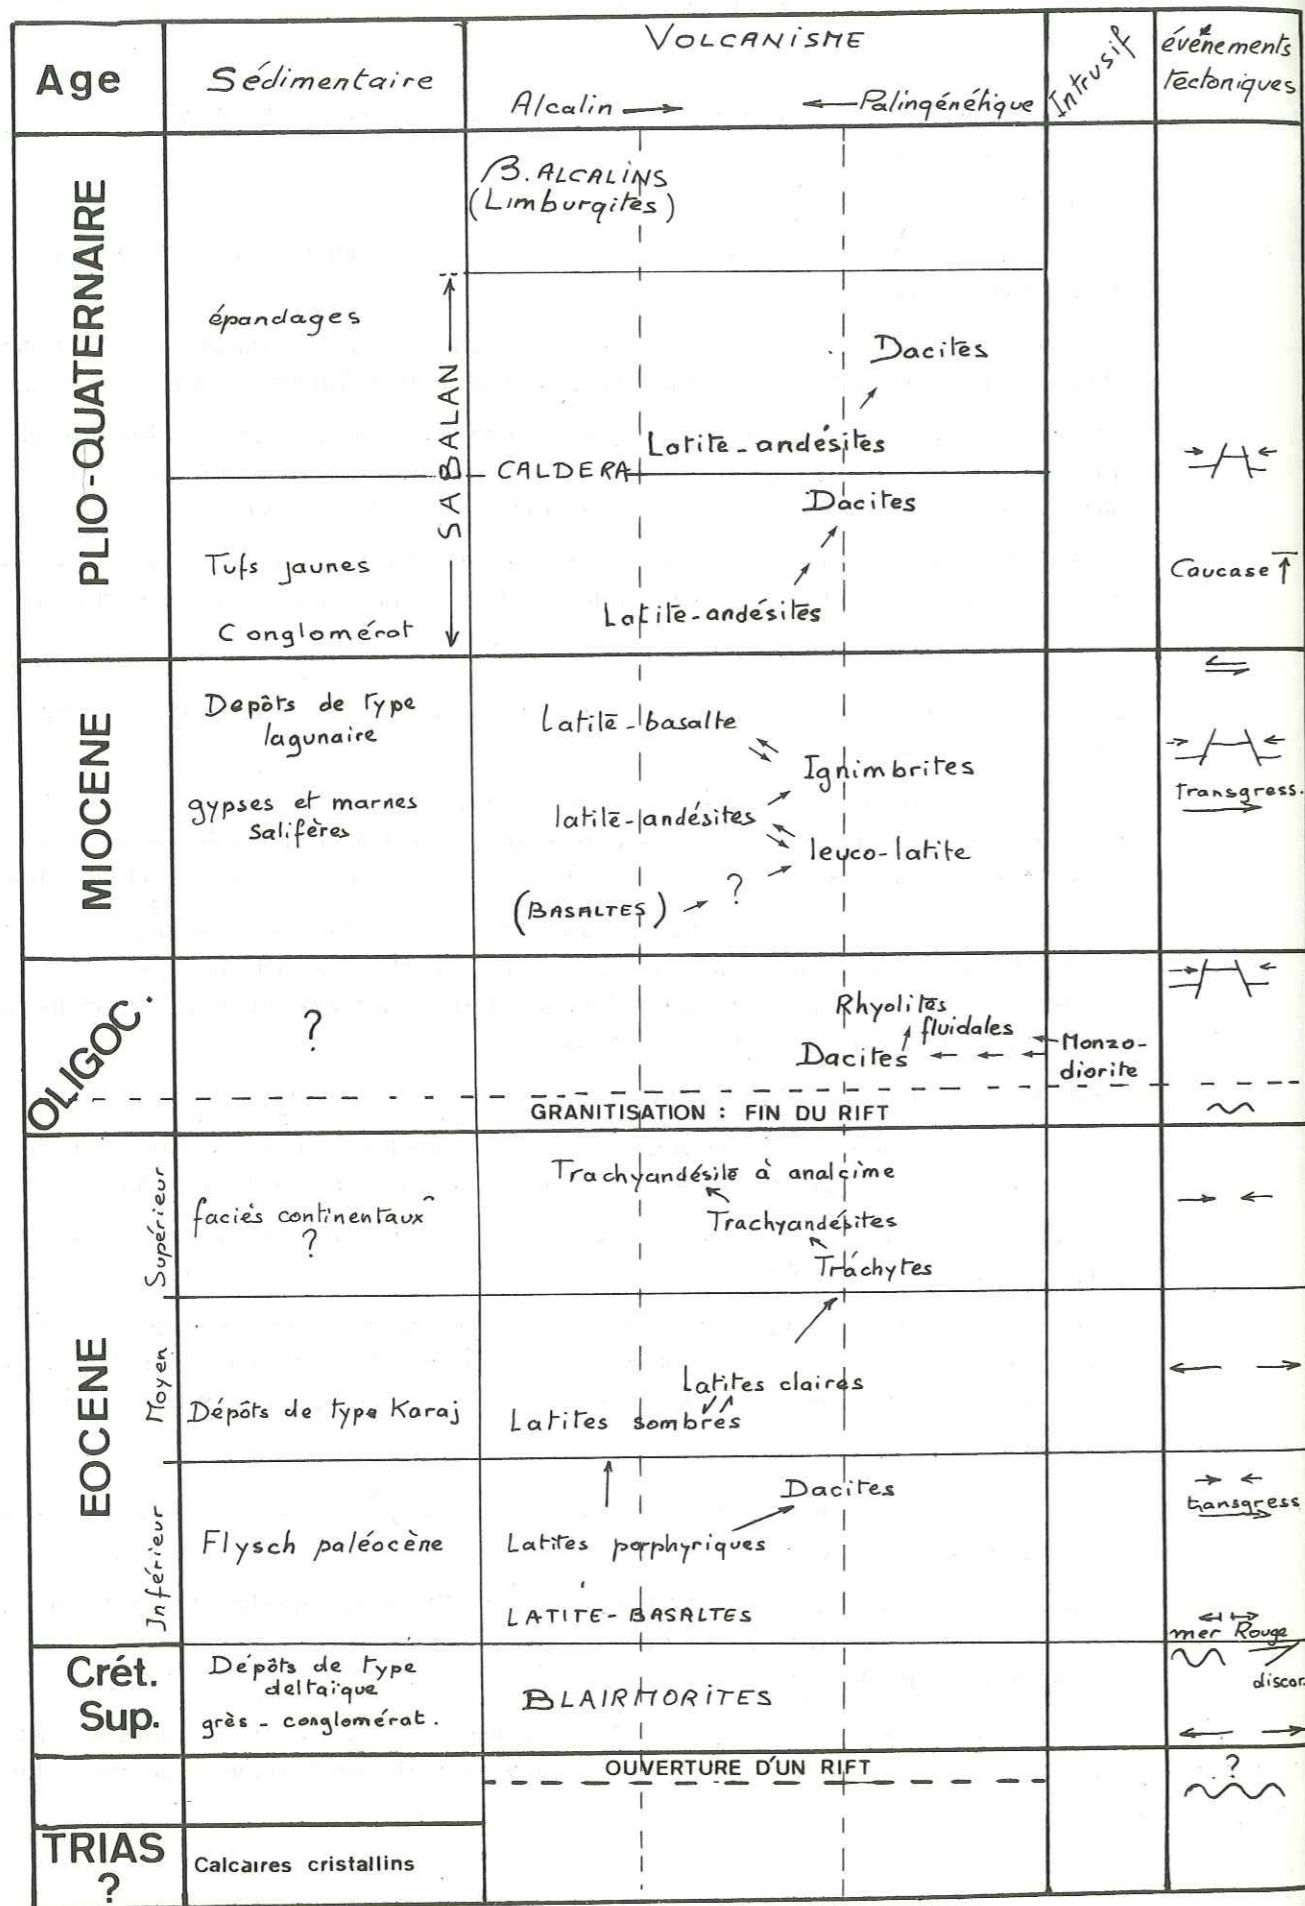 Age
Sédimentaire
VOLCANISME
Alcalin
Palingénétique
Intrusif
événements
tectoniques
PLIO-QUATERNAIRE
B. ALCALINS
(Limburgites)
épandages
SABALAN
Dacites
Latite-andésites
CALDERA
Dacites
Tufs jaunes
Conglomérat
Latite-andésites
Caucase
MIOCENE
Depôts de type
lagunaire
gypses et marnes
salifères
latite-basalte
Ignimbrites
latite-andésites
leuco-latite
(BASALTES)
?
Transgress.
OLIGOC.
?
Rhyolites
fluidales
Dacites
Monzo-
diorite
GRANITISATION : FIN DU RIFT
EOCENE
Supérieur
faciès continentaux
?
Trachyandésite à analcime
Trachyandésites
Trachytes
Moyen
Dépôts de type Karaj
Latites claires
Latites sombres
Inférieur
Flysch paléocène
Dacites
Latites porphyriques
LATITE-BASALTES
transgress
mer Rouge
Crét.
Sup.
Dépôts de type
deltaïque
grès - conglomérat.
BLAIRMORITES
discor.
OUVERTURE D'UN RIFT
?
TRIAS
?
Calcaires cristallins